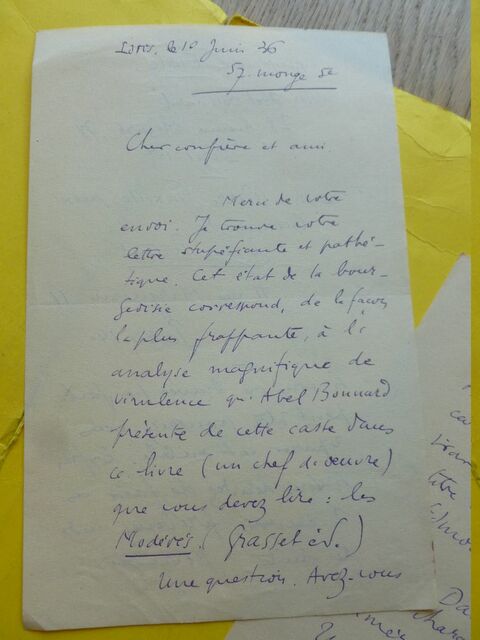 Paris, le 10 Juin 36
57. monge 5e
Cher confrère et ami
Merci de votre
envoi. Je trouve votre
lettre stupéfiante et pathé-
tique. Cet état de la bour-
geoisie correspond, de la façon
la plus frappante, à l'
analyse magnifique de
virulence qu'Abel Bonnard
présente de cette caste dans
ce livre (un chef d'oeuvre)
que vous devez lire : les
Modérés. (Grasset éd.)
Une question. Avez-vous